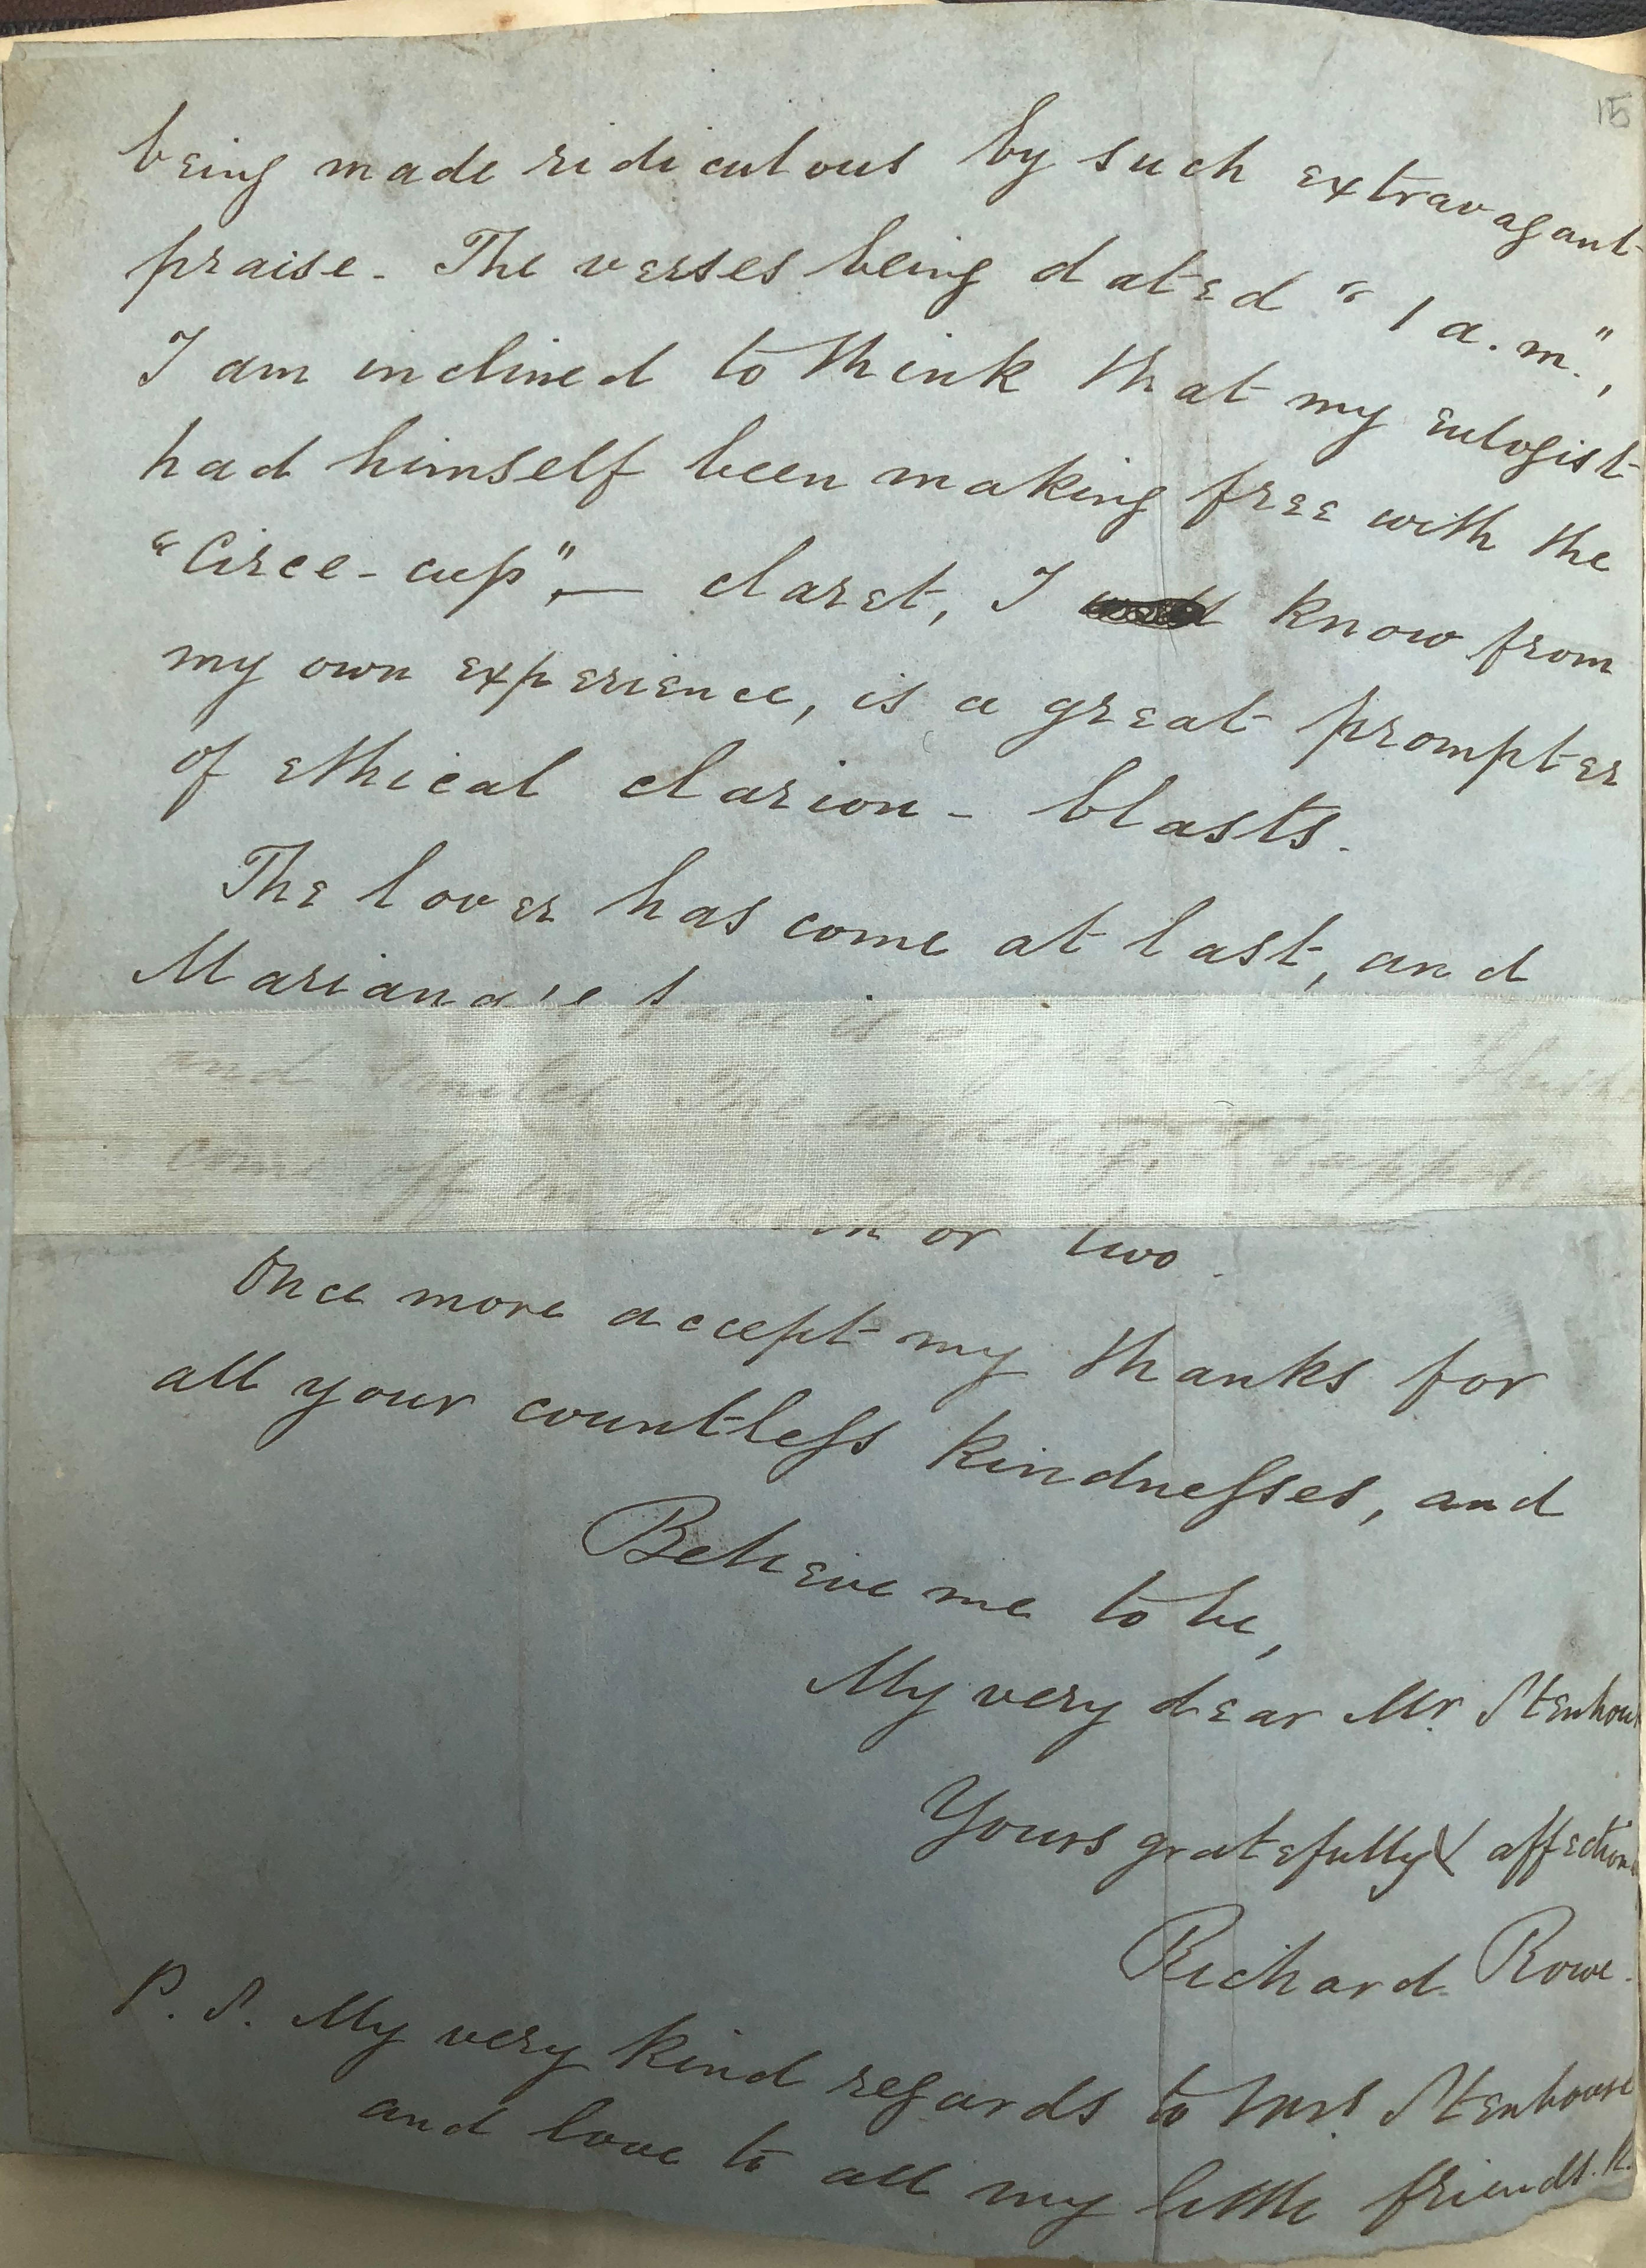 15
being made ridiculous by such extravagant
praise. The verses being dated "1 a.m.",
I am inclined to think that my eulogist
had himself been making free with the
"Circe-cup", — claret, I know from
my own experience, is a great prompter
of ethical clarion-blasts.
The lover has come at last, and
Mariana's face is a garden of blushes
and smiles. The wedding, I suppose,
come off in a week or two.
Once more accept my thanks for
all your countless kindnesses, and
Believe me to be,
My very dear Mr. Stenhouse
Yours gratefully & affection
Richard Rowe.
P.S. My very kind regards to Mrs. Stenhouse
and love to all my little friends. R.